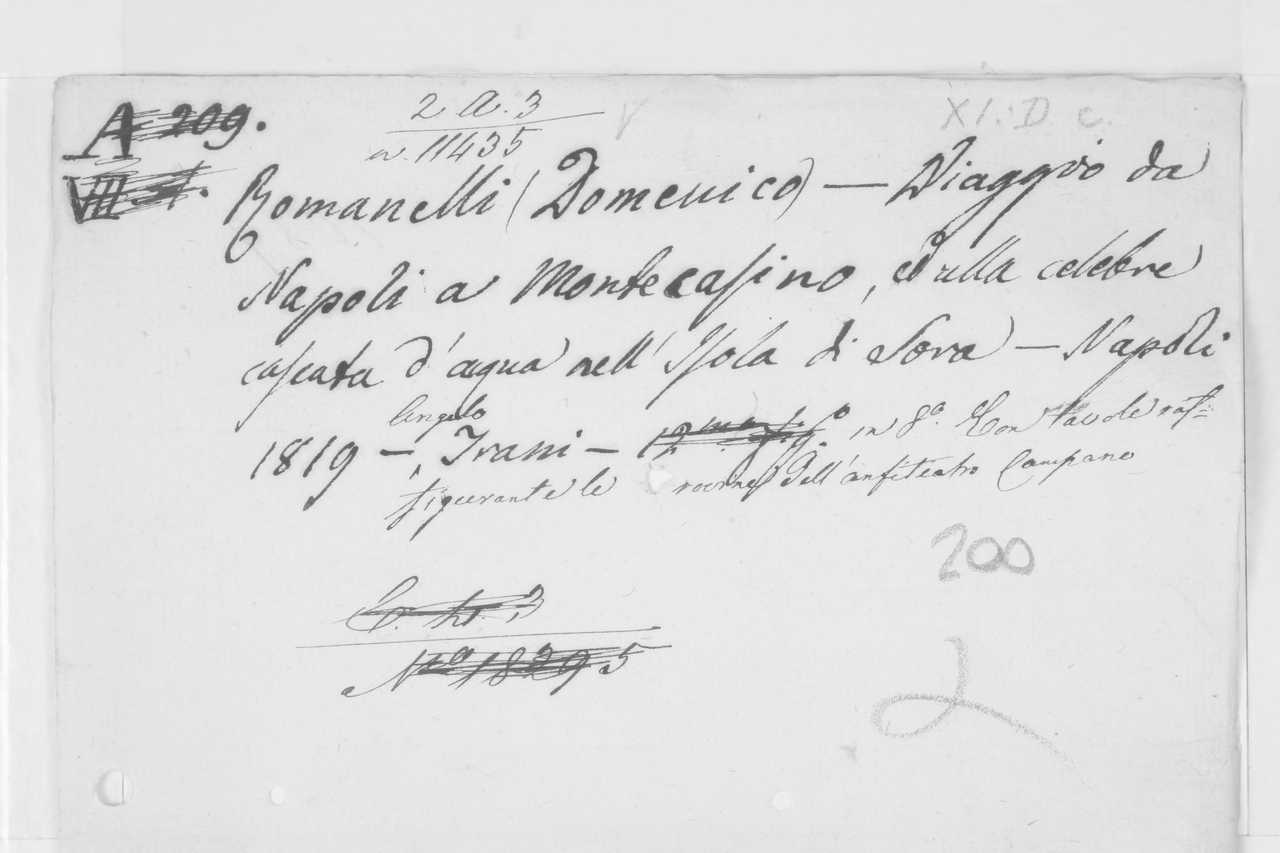 A 209.
2 A. 3
n. 11435
V
XI. D. c.
VII
Romanelli (Domenico) — Viaggio da
Napoli a Montecasino, e dalla celebre
cascata d'acqua nell'Isola di Sora — Napoli
Angelo
1819 — Trani — 12 in 8.º Con tavole raf=
figurante le rovine dell'anfiteatro Campano
200
3
Nº 18295
2